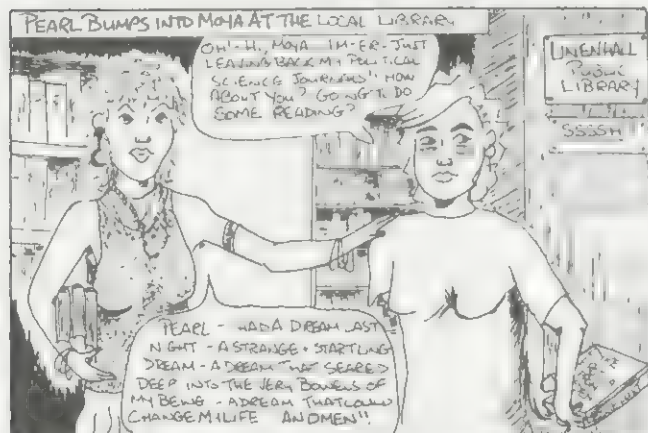 PEARL BUMPS INTO MOYA AT THE LOCAL LIBRARY
OH! - HI, MOYA IM-ER-JUST
LEAVING BACK MY POLITICAL
SCIENCE JOURNALS!! HOW
ABOUT YOU? GOING TO DO
SOME READING?
LINENHALL
PUBLIC
LIBRARY
SSSSH
PEARL - HAD A DREAM LAST
NIGHT - A STRANGE + STARTLING
DREAM - A DREAM THAT SEARED
DEEP INTO THE VERY BOWELS OF
MY BEING - A DREAM THAT COULD
CHANGE MY LIFE AN OMEN!!